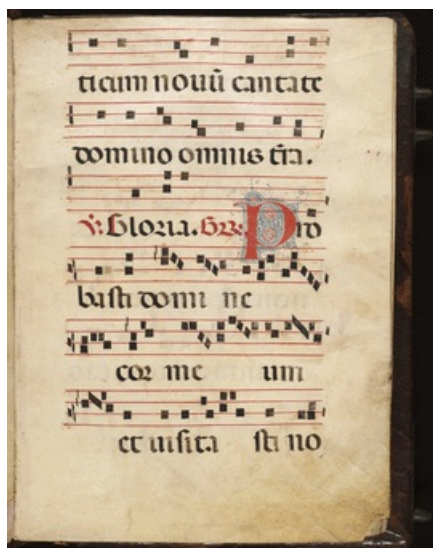 ticum nouū cantate
domino omnis t̄ra.
℣. Gloria. Grł. Pro
basti domi ne
cor me um
et uisita sti no